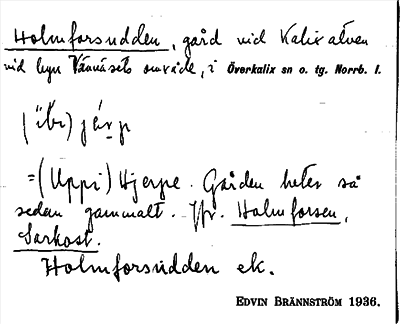 Holmforsudden, gård vid Kalix älven
vid byn Vännäsets område, i Överkalix sn o. tg. Norrb. l.
(ı̈b̀ı) järp
=(Uppi) Hjerpe. Gården heter så
sedan gammalt. Jfr. Holmforsen,
Sarkost.
Holmforsudden ek.
EDVIN BRÄNNSTRÖM 1936.